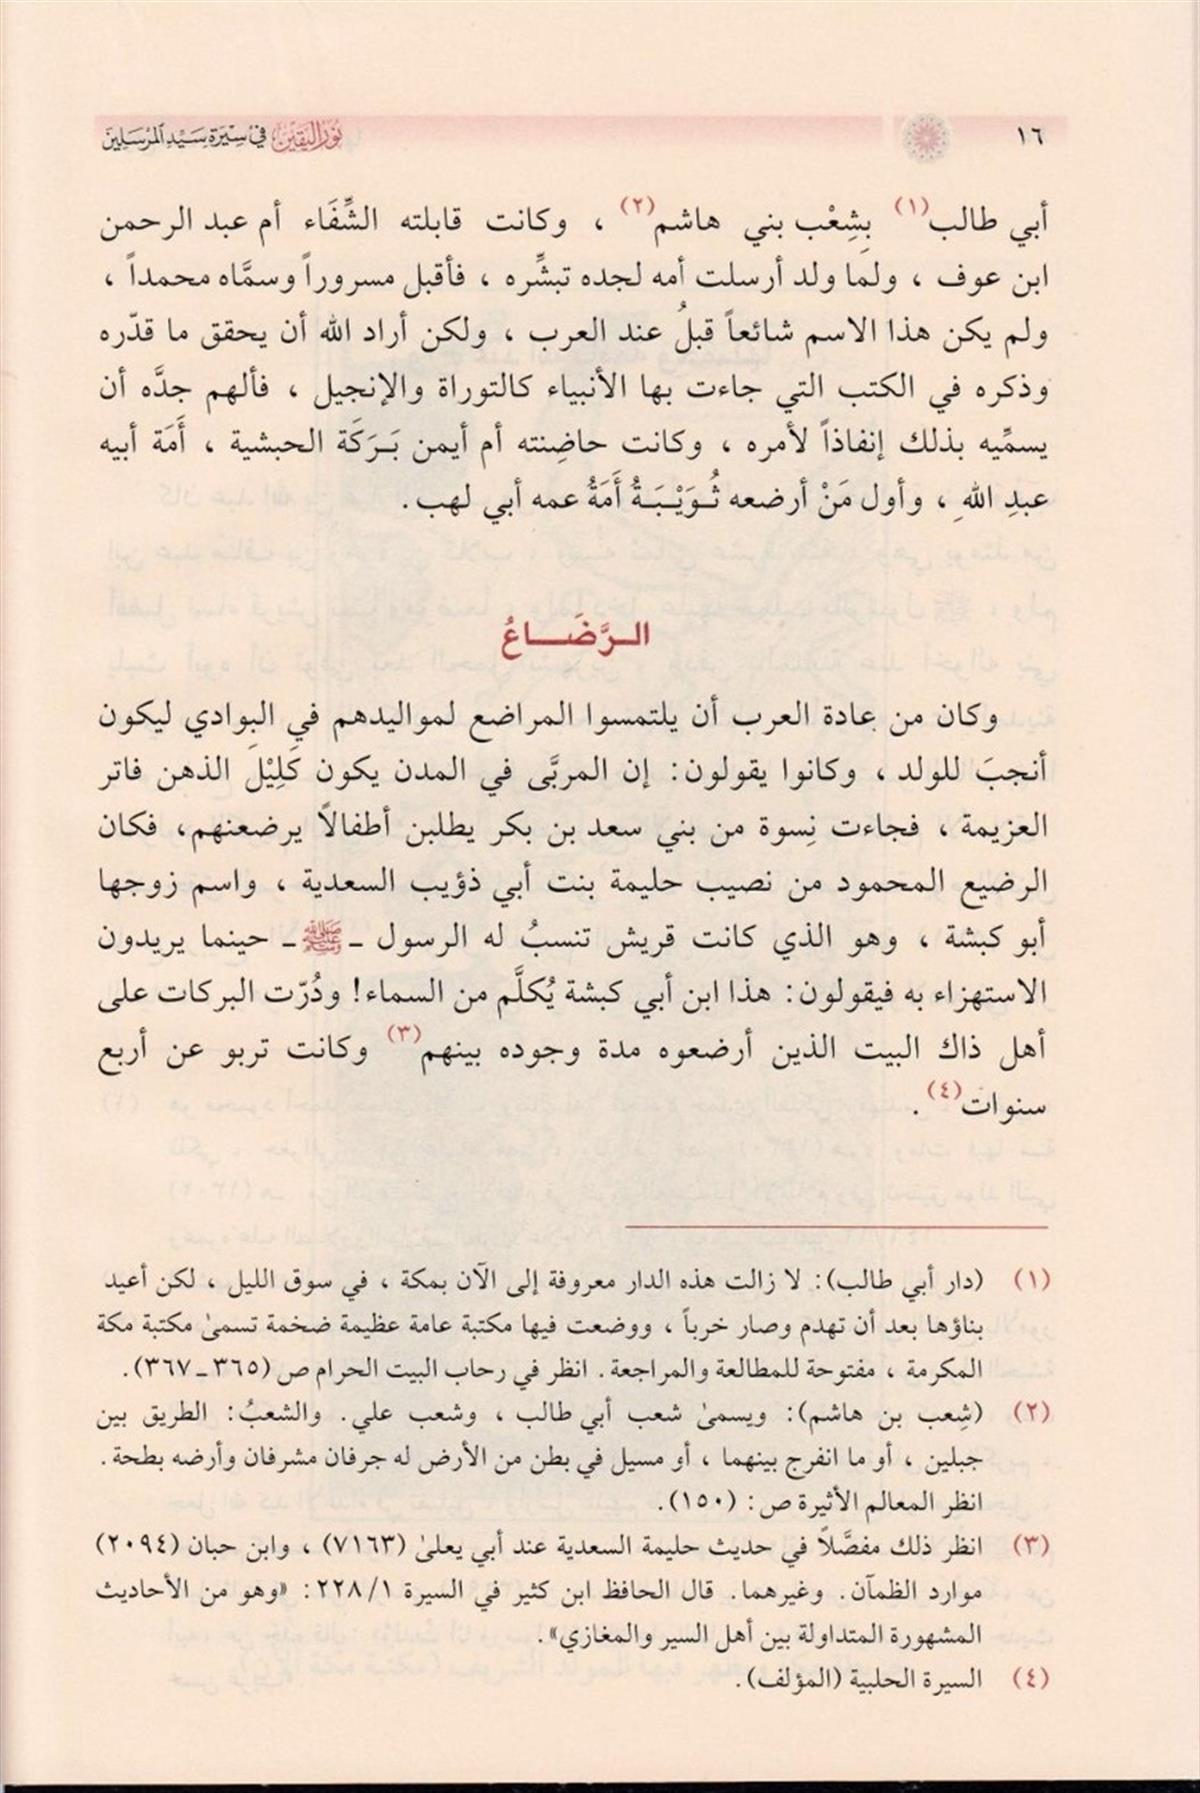 ١٦
نور اليقين في سيرة سيد المرسلين
أبي طالب(١) بِشِعْب بني هاشم(٢) ، وكانت قابلته الشِّفَاء أم عبد الرحمن
ابن عوف ، ولما ولد أرسلت أمه لجده تبشِّره ، فأقبل مسروراً وسمَّاه محمداً ،
ولم يكن هذا الاسم شائعاً قبلُ عند العرب ، ولكن أراد الله أن يحقق ما قدّره
وذكره في الكتب التي جاءت بها الأنبياء كالتوراة والإنجيل ، فألهم جدَّه أن
يسمِّيه بذلك إنفاذاً لأمره ، وكانت حاضِنته أم أيمن بَـرَكَة الحبشية ، أَمَة أبيه
عبدِ اللهِ ، وأول مَنْ أرضعه ثُـوَيْـبَـةُ أَمَةُ عمه أبي لهب .
الـرَّضَـــاعُ
وكان من عادة العرب أن يلتمسوا المراضع لمواليدهم في البوادي ليكون
أنجبَ للولد ، وكانوا يقولون: إن المربَّى في المدن يكون كَلِيْلَ الذهن فاتر
العزيمة ، فجاءت نِسوة من بني سعد بن بكر يطلبن أطفالاً يرضعنهم، فكان
الرضيع المحمود من نصيب حليمة بنت أبي ذؤيب السعدية ، واسم زوجها
أبو كبشة ، وهو الذي كانت قريش تنسبُ له الرسول ـ ﷺ ـ حينما يريدون
الاستهزاء به فيقولون: هذا ابن أبي كبشة يُكلَّم من السماء! ودُرّت البركات على
أهل ذاك البيت الذين أرضعوه مدة وجوده بينهم(٣) وكانت تربو عن أربع
سنوات(٤) .
(١) (دار أبي طالب): لا زالت هذه الدار معروفة إلى الآن بمكة ، في سوق الليل ، لكن أعيد
بناؤها بعد أن تهدم وصار خرباً ، ووضعت فيها مكتبة عامة عظيمة ضخمة تسمىٰ مكتبة مكة
المكرمة ، مفتوحة للمطالعة والمراجعة . انظر في رحاب البيت الحرام ص (٣٦٥ـ٣٦٧) .
(٢) (شِعب بن هاشم): ويسمىٰ شعب أبي طالب ، وشعب علي . والشعبُ: الطريق بين
جبلين ، أو ما انفرج بينهما ، أو مسيل في بطن من الأرض له جرفان مشرفان وأرضه بطحة .
انظر المعالم الأثيرة ص: (١٥٠) .
(٣) انظر ذلك مفصَّلاً في حديث حليمة السعدية عند أبي يعلىٰ (٧١٦٣) ، وابن حبان (٢٠٩٤)
موارد الظمآن . وغيرهما . قال الحافظ ابن كثير في السيرة ٢٢٨/١: «وهو من الأحاديث
المشهورة المتداولة بين أهل السير والمغازي» .
(٤) السيرة الحلبية (المؤلف) .